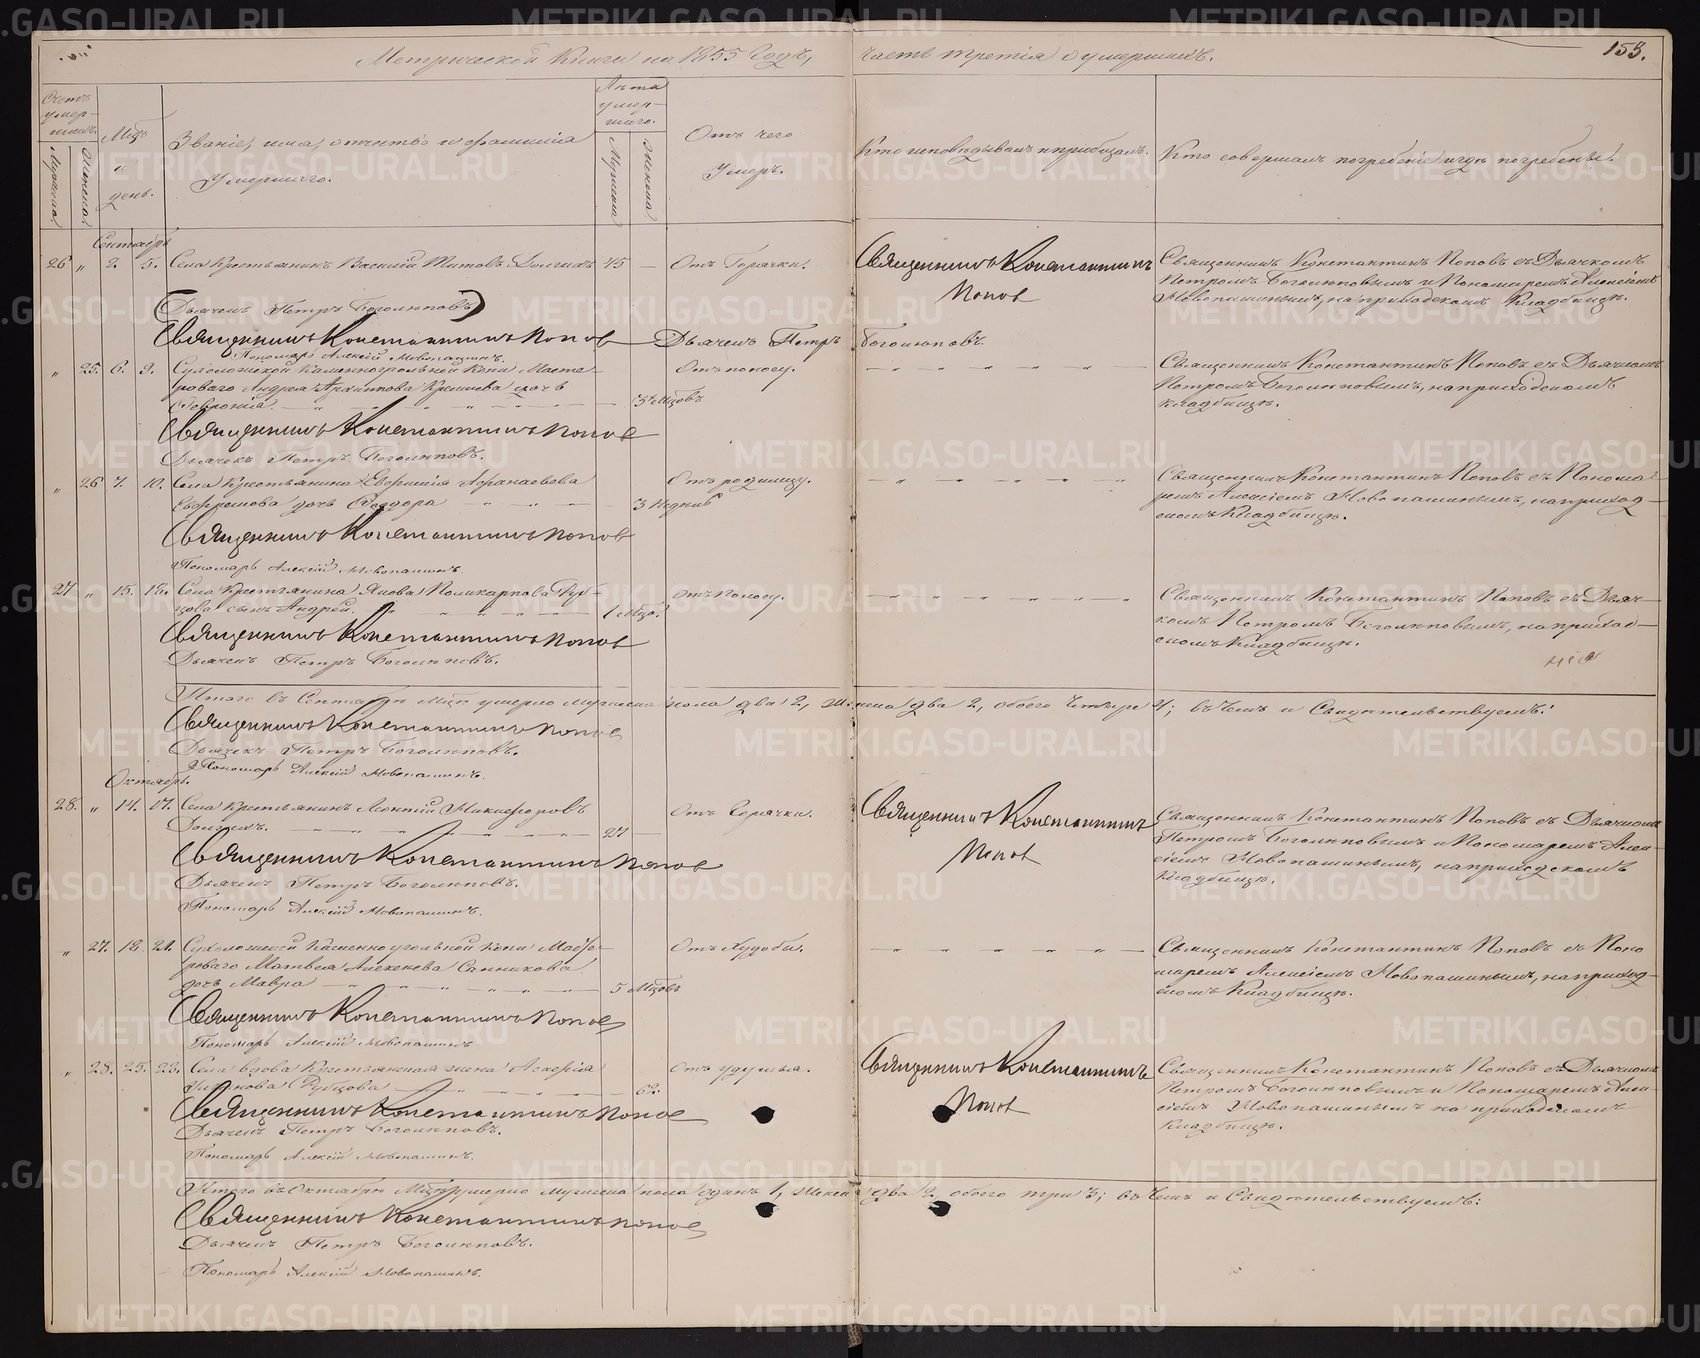 Метрической Книги на 1855 Годъ, часть третія о умершихъ.
153.
Счетъ умер-
шихъ.
Мужеска
Женска
Мѣсяцъ
и
день.
Званіе, имя, отчество и фамилія
Умершаго.
Лѣта
умер-
шаго.
Мужеска
Женска
Отъ чего
Умеръ.
Кто исповѣдывалъ и пріобщалъ.
Кто совершалъ погребеніе и гдѣ погребены.
Сентябрь
26 „ 2. 5. Села Крестьянинъ Василій Титовъ Долгихъ 45 — Отъ Горячки.
Священникъ Константинъ
Попов
Священникъ Константинъ Поповъ съ Дьячкомъ
Петромъ Боголюповымъ и Пономаремъ Алексіемъ
Новопашинымъ, на приходскомъ Кладбищѣ.
Дьячекъ Петръ Боголюповъ
Священникъ Константинъ Попов Дьячекъ Петръ Боголюповъ.
Пономарь Алексій Новопашинъ.
„ 25. 6. 9. Сухоложской Каменноугольной Копи Масте-
роваго Андрея Архиппова дочь
Февронія. 3 Мѣсяцовъ
Отъ поносу.
Священникъ Константинъ Поповъ съ Дьячкомъ
Петромъ Боголюповымъ, на приходскомъ
кладбищѣ.
Священникъ Константинъ Попов
Дьячекъ Петръ Боголюповъ.
„ 26 7. 10. Села Крестьянина Аѳанасьева
Ефремова дочь Ѳеодора 3 Недѣль
Отъ родимцу.
Священникъ Константинъ Поповъ съ Понома-
ремъ Алексіемъ Новопашинымъ, на приход-
скомъ Кладбищѣ.
Священникъ Константинъ Попов
Пономарь Алексій Новопашинъ.
27 „ 15. 18. Села Крестьянина Якова Поликарпова Руб-
цова сынъ Андрей. 1 Мѣсяц.
Отъ Поносу.
Священникъ Константинъ Поповъ съ Дьяч-
комъ Петромъ Боголюповымъ, на приход-
скомъ Кладбищѣ.
Священникъ Константинъ Попов
Дьячекъ Петръ Боголюповъ.
Итого въ Сентябрѣ Мѣсяцѣ умерло мужеска пола два 2, женска два 2, обоего Четыре 4; въ чемъ и Свидѣтельствуемъ:
Священникъ Константинъ Попов
Дьячекъ Петръ Боголюповъ.
Пономарь Алексій Новопашинъ.
Октябрь.
28. „ 14. 17. Села Крестьянинъ Леонтій Никифоровъ
Долгихъ. 27
Отъ Горячки.
Священникъ Константинъ
Попов
Священникъ Константинъ Поповъ съ Дьячкомъ
Петромъ Боголюповымъ и Пономаремъ Алек-
сіемъ Новопашинымъ, на приходскомъ
Кладбищѣ.
Священникъ Константинъ Попов
Дьячекъ Петръ Боголюповъ.
Пономарь Алексій Новопашинъ.
„ 27. 18. 21. Сухоложской Каменноугольной Копи Масте-
роваго Матвея Алексеева Санникова
дочь Мавра 5 Мѣсяцовъ
Отъ Худобы.
Священникъ Константинъ Поповъ съ Поно-
маремъ Алексіемъ Новопашинымъ, на приход-
скомъ Кладбищѣ.
Священникъ Константинъ Попов
Пономарь Алексій Новопашинъ
„ 28. Села вдова Крестьянская жена
Рубцова 62.
Отъ удушья.
Священникъ Константинъ
Попов
Священникъ Константинъ Поповъ съ Дьячкомъ
Петромъ Боголюповымъ и Пономаремъ Алек-
сіемъ Новопашинымъ на приходскомъ
Кладбищѣ.
Священникъ Константинъ Попов
Дьячекъ Петръ Боголюповъ.
Пономарь Алексій Новопашинъ.
Итого въ Октябрѣ Мѣсяцѣ умерло мужеска пола одинъ 1, женска два 2 обоего три 3; въ чемъ и Свидѣтельствуемъ:
Священникъ Константинъ Попов
Дьячекъ Петръ Боголюповъ.
Пономарь Алексій Новопашинъ.
METRIKI.GASO-URAL.RU